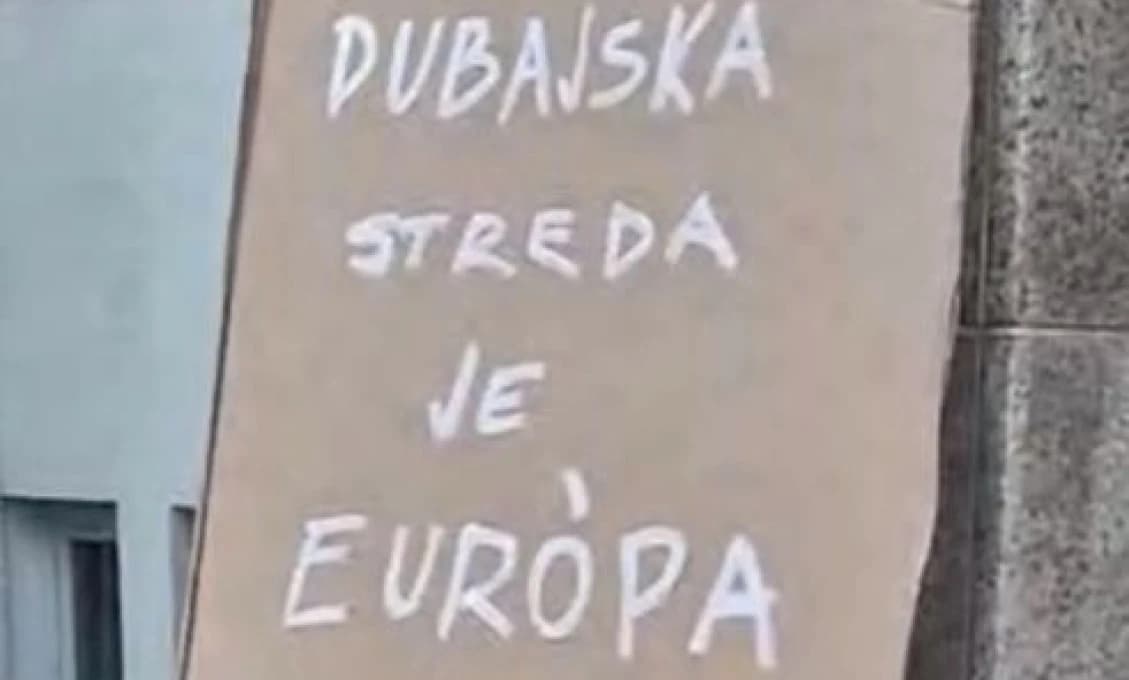 DUBAJSKA
STREDA
JE
EURÒPA